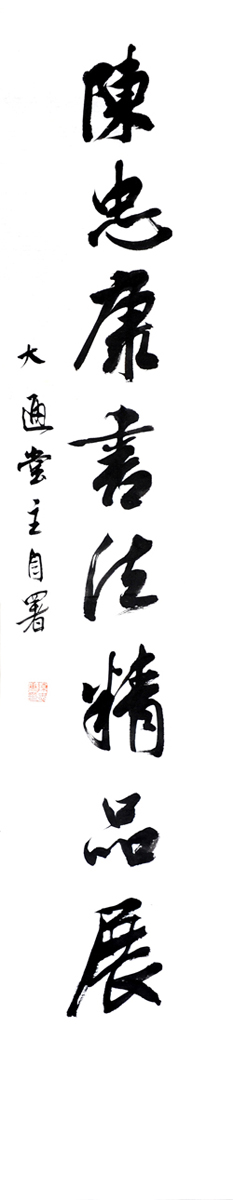 陳忠康書法精品展
大通堂主自署